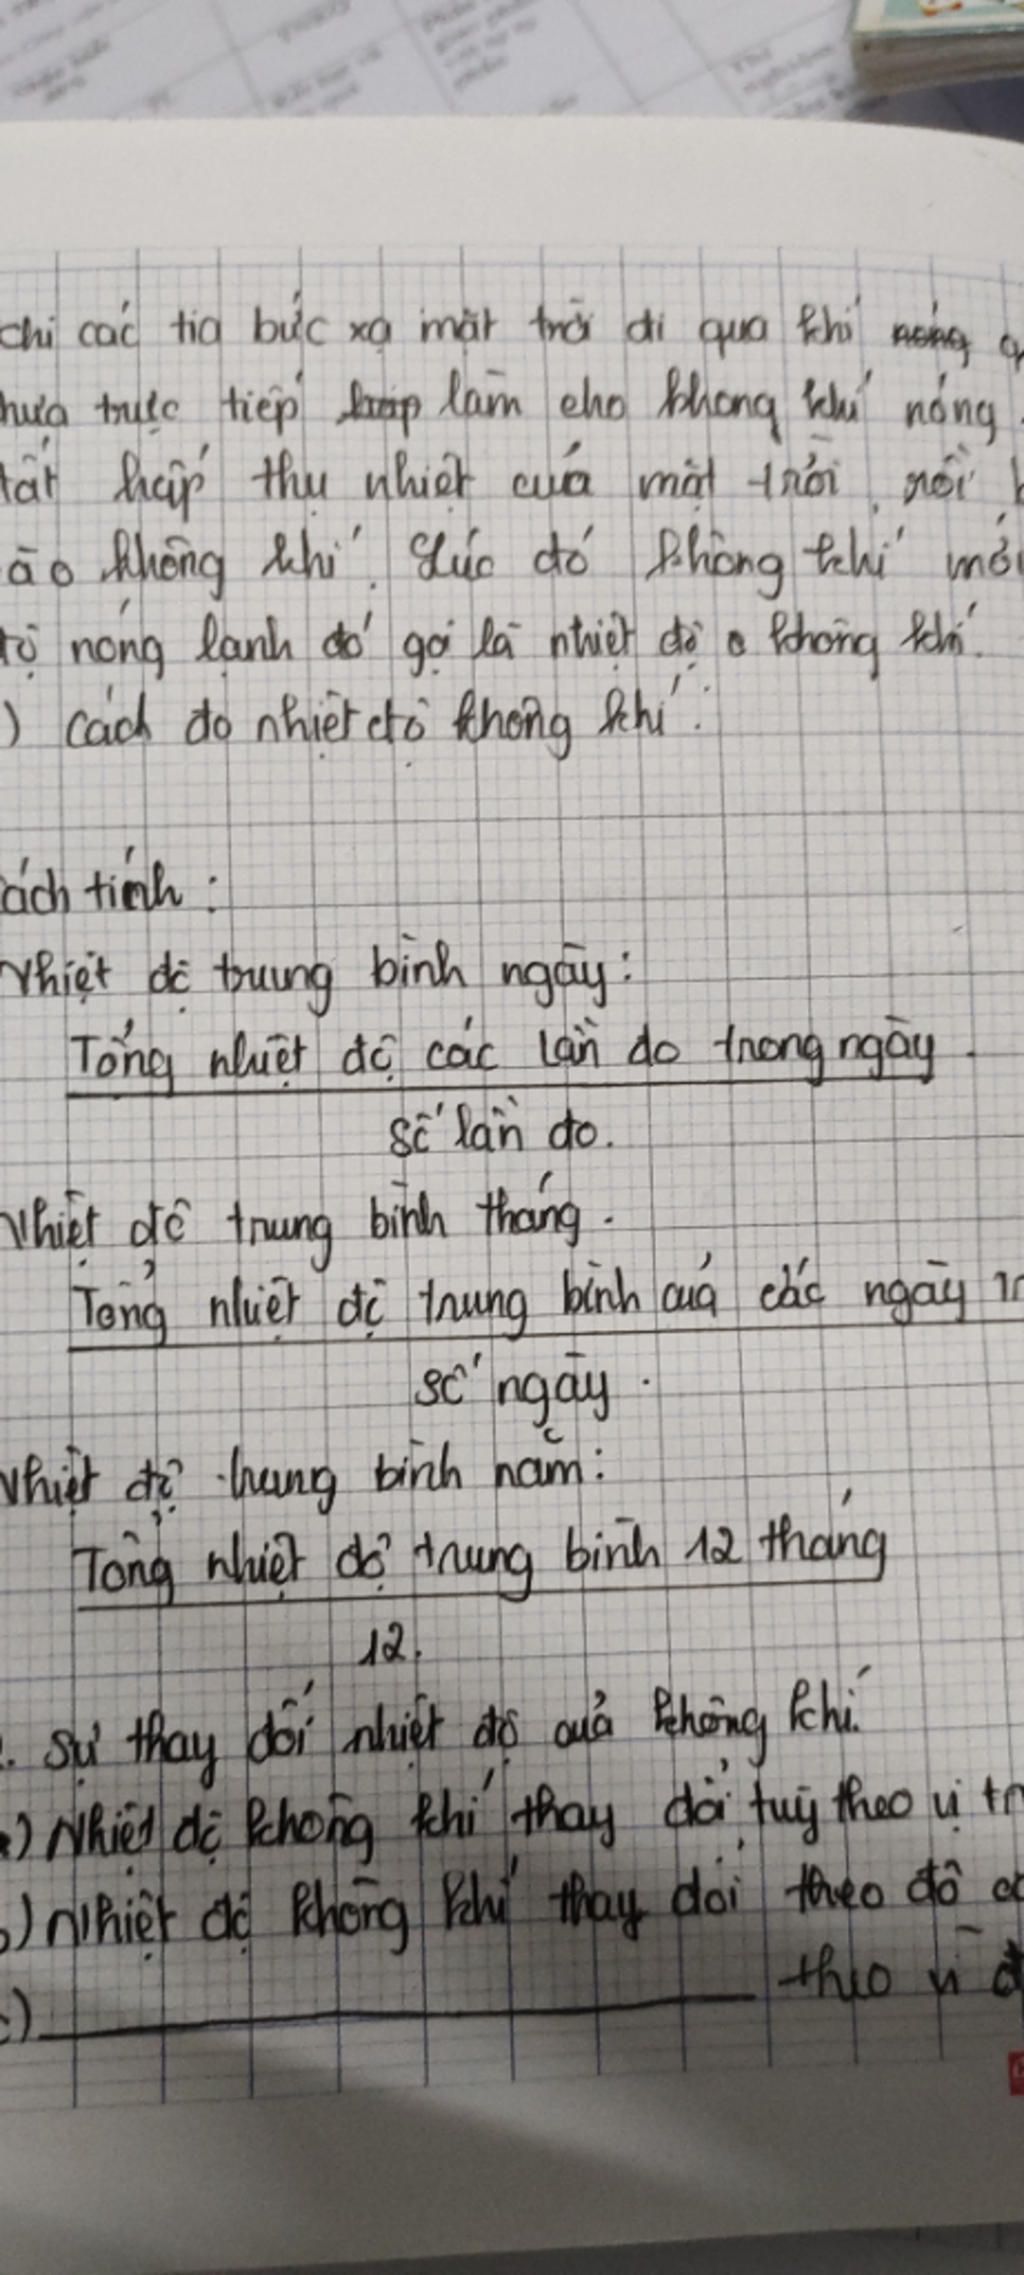 chi các tia bức xạ mặt trời đi qua khí nóng
trực tiếp làm cho không khí nóng
hấp thụ nhiệt của mặt trời, rồi
không khí. Lúc đó không khí mới
nóng lạnh đó gọi là nhiệt độ o không khí.
) Cách đo nhiệt độ không khí:
ách tính:
Nhiệt độ trung bình ngày:
Tổng nhiệt độ các lần đo trong ngày.
số lần đo.
Nhiệt độ trung bình tháng.
Tổng nhiệt độ trung bình của các ngày
số ngày.
Nhiệt độ trung bình năm:
Tổng nhiệt độ trung bình 12 tháng
12.
. Sự thay đổi nhiệt độ của không khí.
) Nhiệt độ không khí thay đổi tuỳ theo vị tr
b) Nhiệt độ không khí thay đổi theo độ
c) theo vĩ đ